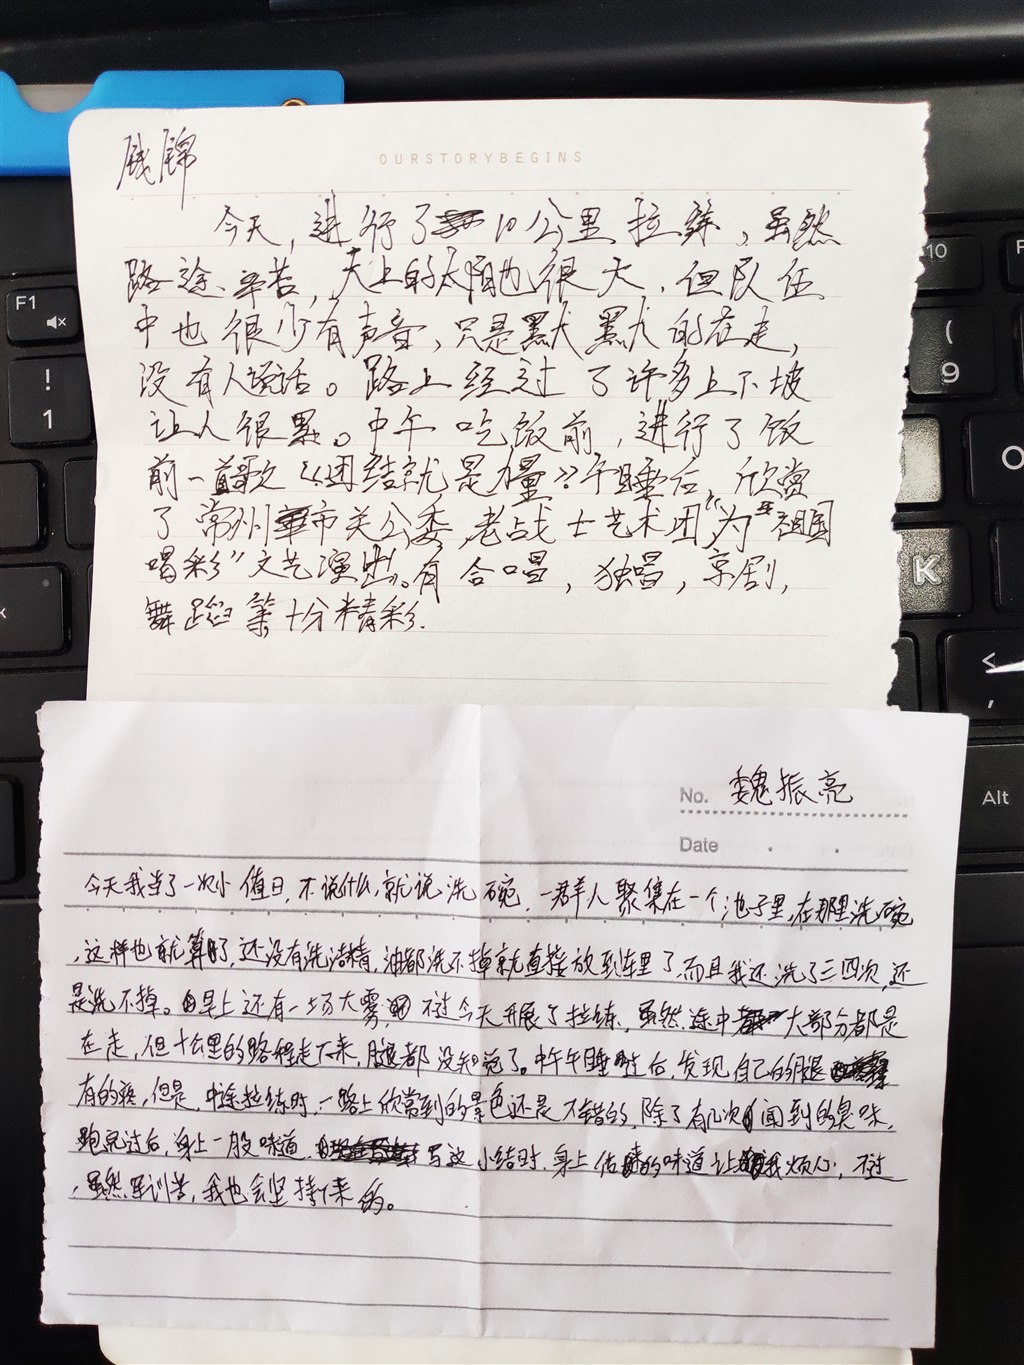 OURSTORYBEGINS
今天,进行了10公里拉练,虽然
路途辛苦,天上的太阳也很大,但队伍
中也很少有声音,只是默默的在走,
没有人说话。路上经过了许多上下坡
让人很累。中午吃饭前,进行了饭
前一首歌《团结就是力量》午睡后,欣赏
了常州市关公委,老战士艺术团"为祖国
喝彩"文艺演出。有合唱,独唱,京剧,
舞蹈等十分精彩.
No. 魏振亮
Date
今天我当了一次小值日,不说什么,就说洗碗,一群人聚集在一个池子里,在那里洗碗
,这样也就算了,还没有洗洁精,油都洗不掉就直接放到车里了,而且我还洗了三四次,还
是洗不掉。早上还有一场大雾,不过今天开展了拉练,虽然途中大部分都是
在走,但十公里的路程走下来,腿都没知觉了。中午午睡过后,发现自己的腿
有的疼,但是,中途拉练时,一路上欣赏到的景色还是不错的,除了有几次闻到的臭味,
跑完过后,身上一股味道,写这小结时,身上的味道让我烦心,不过
,虽然军训苦,我也会坚持下来的。
F1
!
1
10
(
9
O
K
<
,
Alt